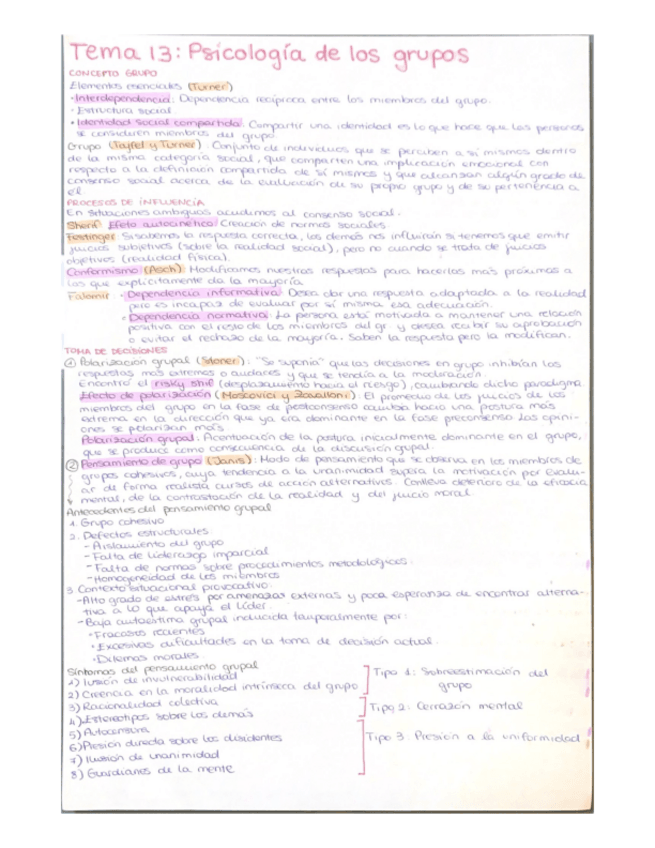 Tema 13: Psicología de los grupos
CONCEPTO GRUPO
Elementos esenciales (Turner)
· Interdependencia: Dependencia recíproca entre los miembros del grupo.
· Estructura social
· Identidad social compartida: Compartir una identidad es lo que hace que las personas
se consideren miembros del grupo.
Grupo (Tajfel y Turner): Conjunto de individuos que se perciben a sí mismos dentro
de la misma categoría social, que comparten una implicación emocional con
respecto a la definición compartida de sí mismos y que alcanzan algún grado de
consenso social acerca de la evaluación de su propio grupo y de su pertenencia a
él.
PROCESOS DE INFLUENCIA
En situaciones ambiguas acudimos al consenso social.
Sherif: Efeto autocinético: Creación de normas sociales.
Festinger: Si sabemos la respuesta correcta, los demás nos influirán si tenemos que emitir
juicios subjetivos (sobre la realidad social), pero no cuando se trata de juicios
objetivos (realidad física).
Conformismo (Asch): Modificamos nuestras respuestas para hacerlas más próximas a
las que explícitamente da la mayoría
Falomir: · Dependencia informativa: Desea dar una respuesta adaptada a la realidad
pero es incapaz de evaluar por sí misma esa adecuación.
· Dependencia normativa: La persona está motivada a mantener una relación
positiva con el resto de los miembros del gr y desea recibir su aprobación
o evitar el rechazo de la mayoría. Saben la respuesta pero la modifican.
TOMA DE DECISIONES
① Polarización grupal (Stoner): "Se suponía" que las decisiones en grupo inhibían las
respuestas más extremas o audaces y que se tendía a la moderación.
Encontró el risky shif (desplazamiento hacia el riesgo), cambiando dicho paradigma.
Efecto de polarización (Moscovici y Zavalloni): El promedio de los juicios de los
miembros del grupo en la fase de postconsenso cambia hacia una postura más
extrema en la dirección que ya era dominante en la fase preconsenso. Las opini-
ones se polarizan más.
Polarización grupal: Acentuación de la postura inicialmente dominante en el grupo,
que se produce como consecuencia de la discusión grupal.
② Pensamiento de grupo (Janis): Modo de pensamiento que se observa en los miembros de
grupos cohesivos, cuya tendencia a la unanimidad supera la motivación por evalu-
ar de forma realista cursos de acción alternativos. Conlleva deterioro de la eficacia
mental, de la contrastación de la realidad y del juicio moral.
Antecedentes del pensamiento grupal
1. Grupo cohesivo
2. Defectos estructurales:
- Aislamiento del grupo
- Falta de liderazgo imparcial
- Falta de normas sobre procedimientos metodológicos.
- Homogeneidad de los miembros
3. Contexto situacional provocativo:
- Alto grado de estrés por amenazas externas y poca esperanza de encontrar alterna-
tiva a lo que apoya el líder.
- Baja autoestima grupal inducida temporalmente por:
· Fracasos recientes
· Excesivas dificultades en la toma de decisión actual.
· Dilemas morales.
Síntomas del pensamiento grupal
1) Ilusión de invulnerabilidad
2) Creencia en la moralidad intrínseca del grupo
Tipo 1: Sobreestimación del
grupo
3) Racionalidad colectiva
4) Estereotipos sobre los demás
Tipo 2: Cerrazón mental
5) Autocensura
6) Presión directa sobre los disidentes
7) Ilusión de unanimidad
8) Guardianes de la mente
Tipo 3. Presión a la uniformidad